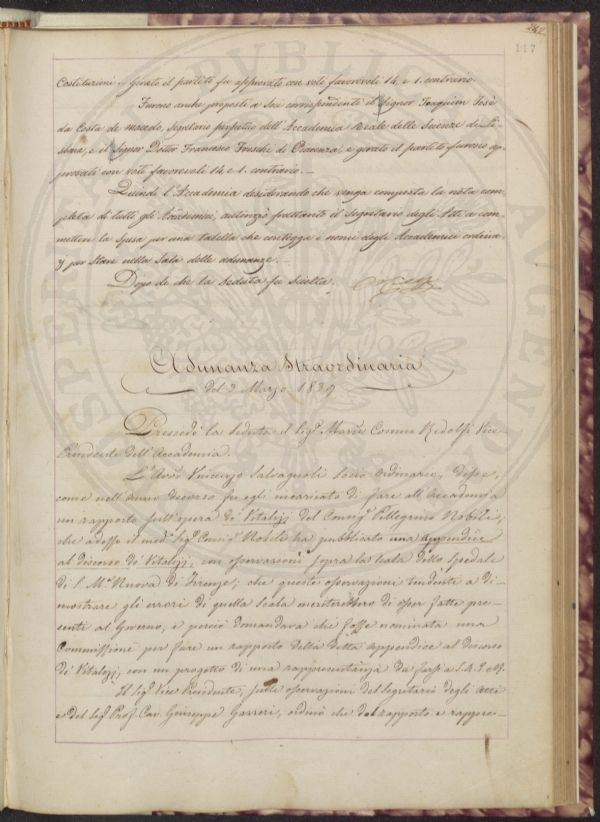 117
Costituzioni. Girato il partito fu approvato con voti favorevoli 14, e 1. contrario.
Furono anche proposti a Soci corrispondenti il Signor Joaquim Josè
da Costa de macedo, Segretario perpetuo dell'Accademia Reale delle Scienze di Li-
sbona, e il Signor Dottor Francesco Freschi di Piacenza, e girato il partito furono ap-
provati con voti favorevoli 14, e 1. contrario. —
Quindi l'Accademia desiderando che venga composta la nota com-
pleta di tutti gli Accademici, autorizzò frattanto il Segretario degli Atti a com-
mettere la spesa per una tabella che contegga i nomi degli Accademici ordina-
rj per stare nella Sala delle adunanze. —
Dopo di che la Seduta fu sciolta.
Adunanza Straordinaria
del 3 Marzo 1839
Presiedè la Seduta il Sigr. March. Comm. Ridolfi Vice
Presidente dell'Accademia.
L'Avvo. Vincenzo Salvagnoli Socio Ordinario, disse,
come nell'anno decorso fu egli incaricato di fare all'Accademia
un rapporto sull'opera de' Vitalizj del Consigr. Pellegrino Nobili,
che adesso il medo. Sigr. Consigr. Nobili ha pubblicato una appendice
al discorso de' Vitalizj, con osservazioni sopra la scala dello Spedale
di S. Ma. Nuova di Firenze; che queste osservazioni tendenti a di-
mostrare gli errori di quella scala meriterebbero di esser fatte pre-
senti al Governo, e perciò domandava che fosse nominata una
Commissione per fare un rapporto della detta appendice al discorso
de' Vitalizj, con un progetto di una rappresentanza da farsi a S. A. I. e R.
Il Sigr. Vice Presidente, sulle osservazioni del Segretario degli Atti
e del Sigr. Prof. Cav. Giuseppe Gazzeri, ordinò che del rapporto e rappre-